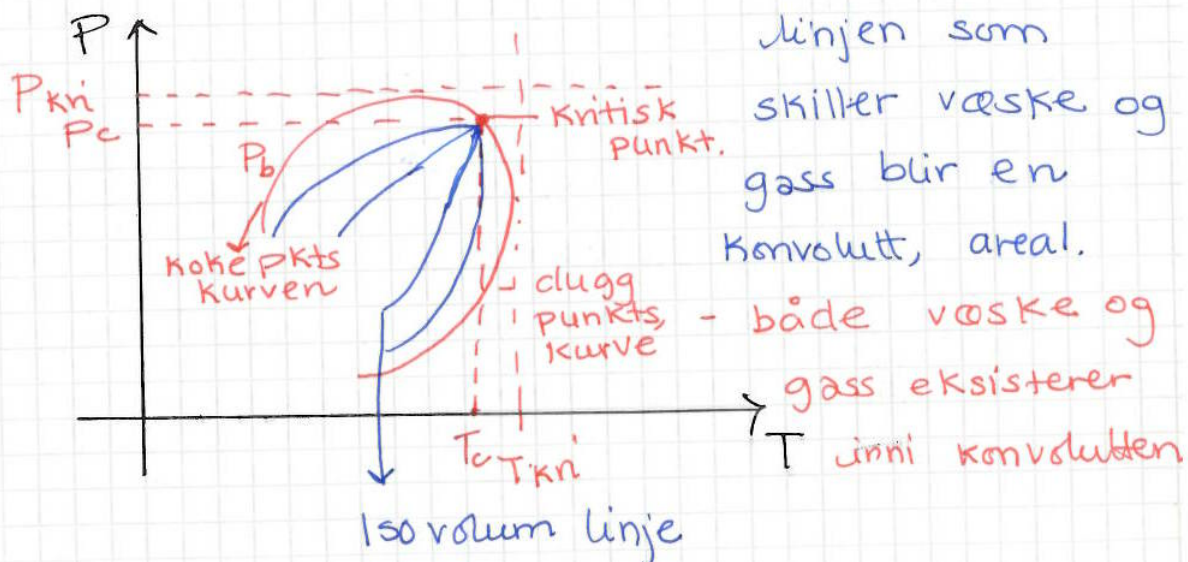 P
Pkri
Pc
Pb
Kritisk
punkt.
koke pkts
kurven
dugg
punkts,
kurve
Tc
Tkri
T
Isovolum linje
linjen som
skiller væske og
gass blir en
konvolutt, areal.
- både væske og
gass eksisterer
inni konvolutten